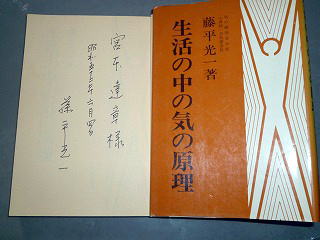 藤平光一著
生活の中の気の原理
宮本達章様
昭和五十三年六月四日
藤平光一